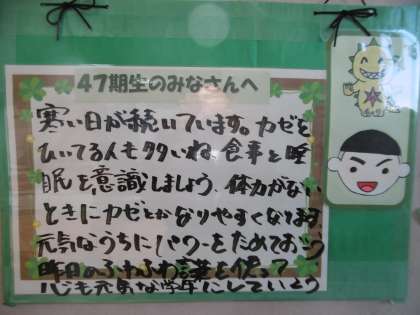 47期生のみなさんへ
寒い日が続いています。カゼを
ひいてる人も多いね。食事と睡
眠を意識しましょう、体力がない
ときにカゼとかなりやすくなります
元気なうちにパワーをためておこう
昨日のふわふわ言葉を使って
心も元気な学年にしていこう